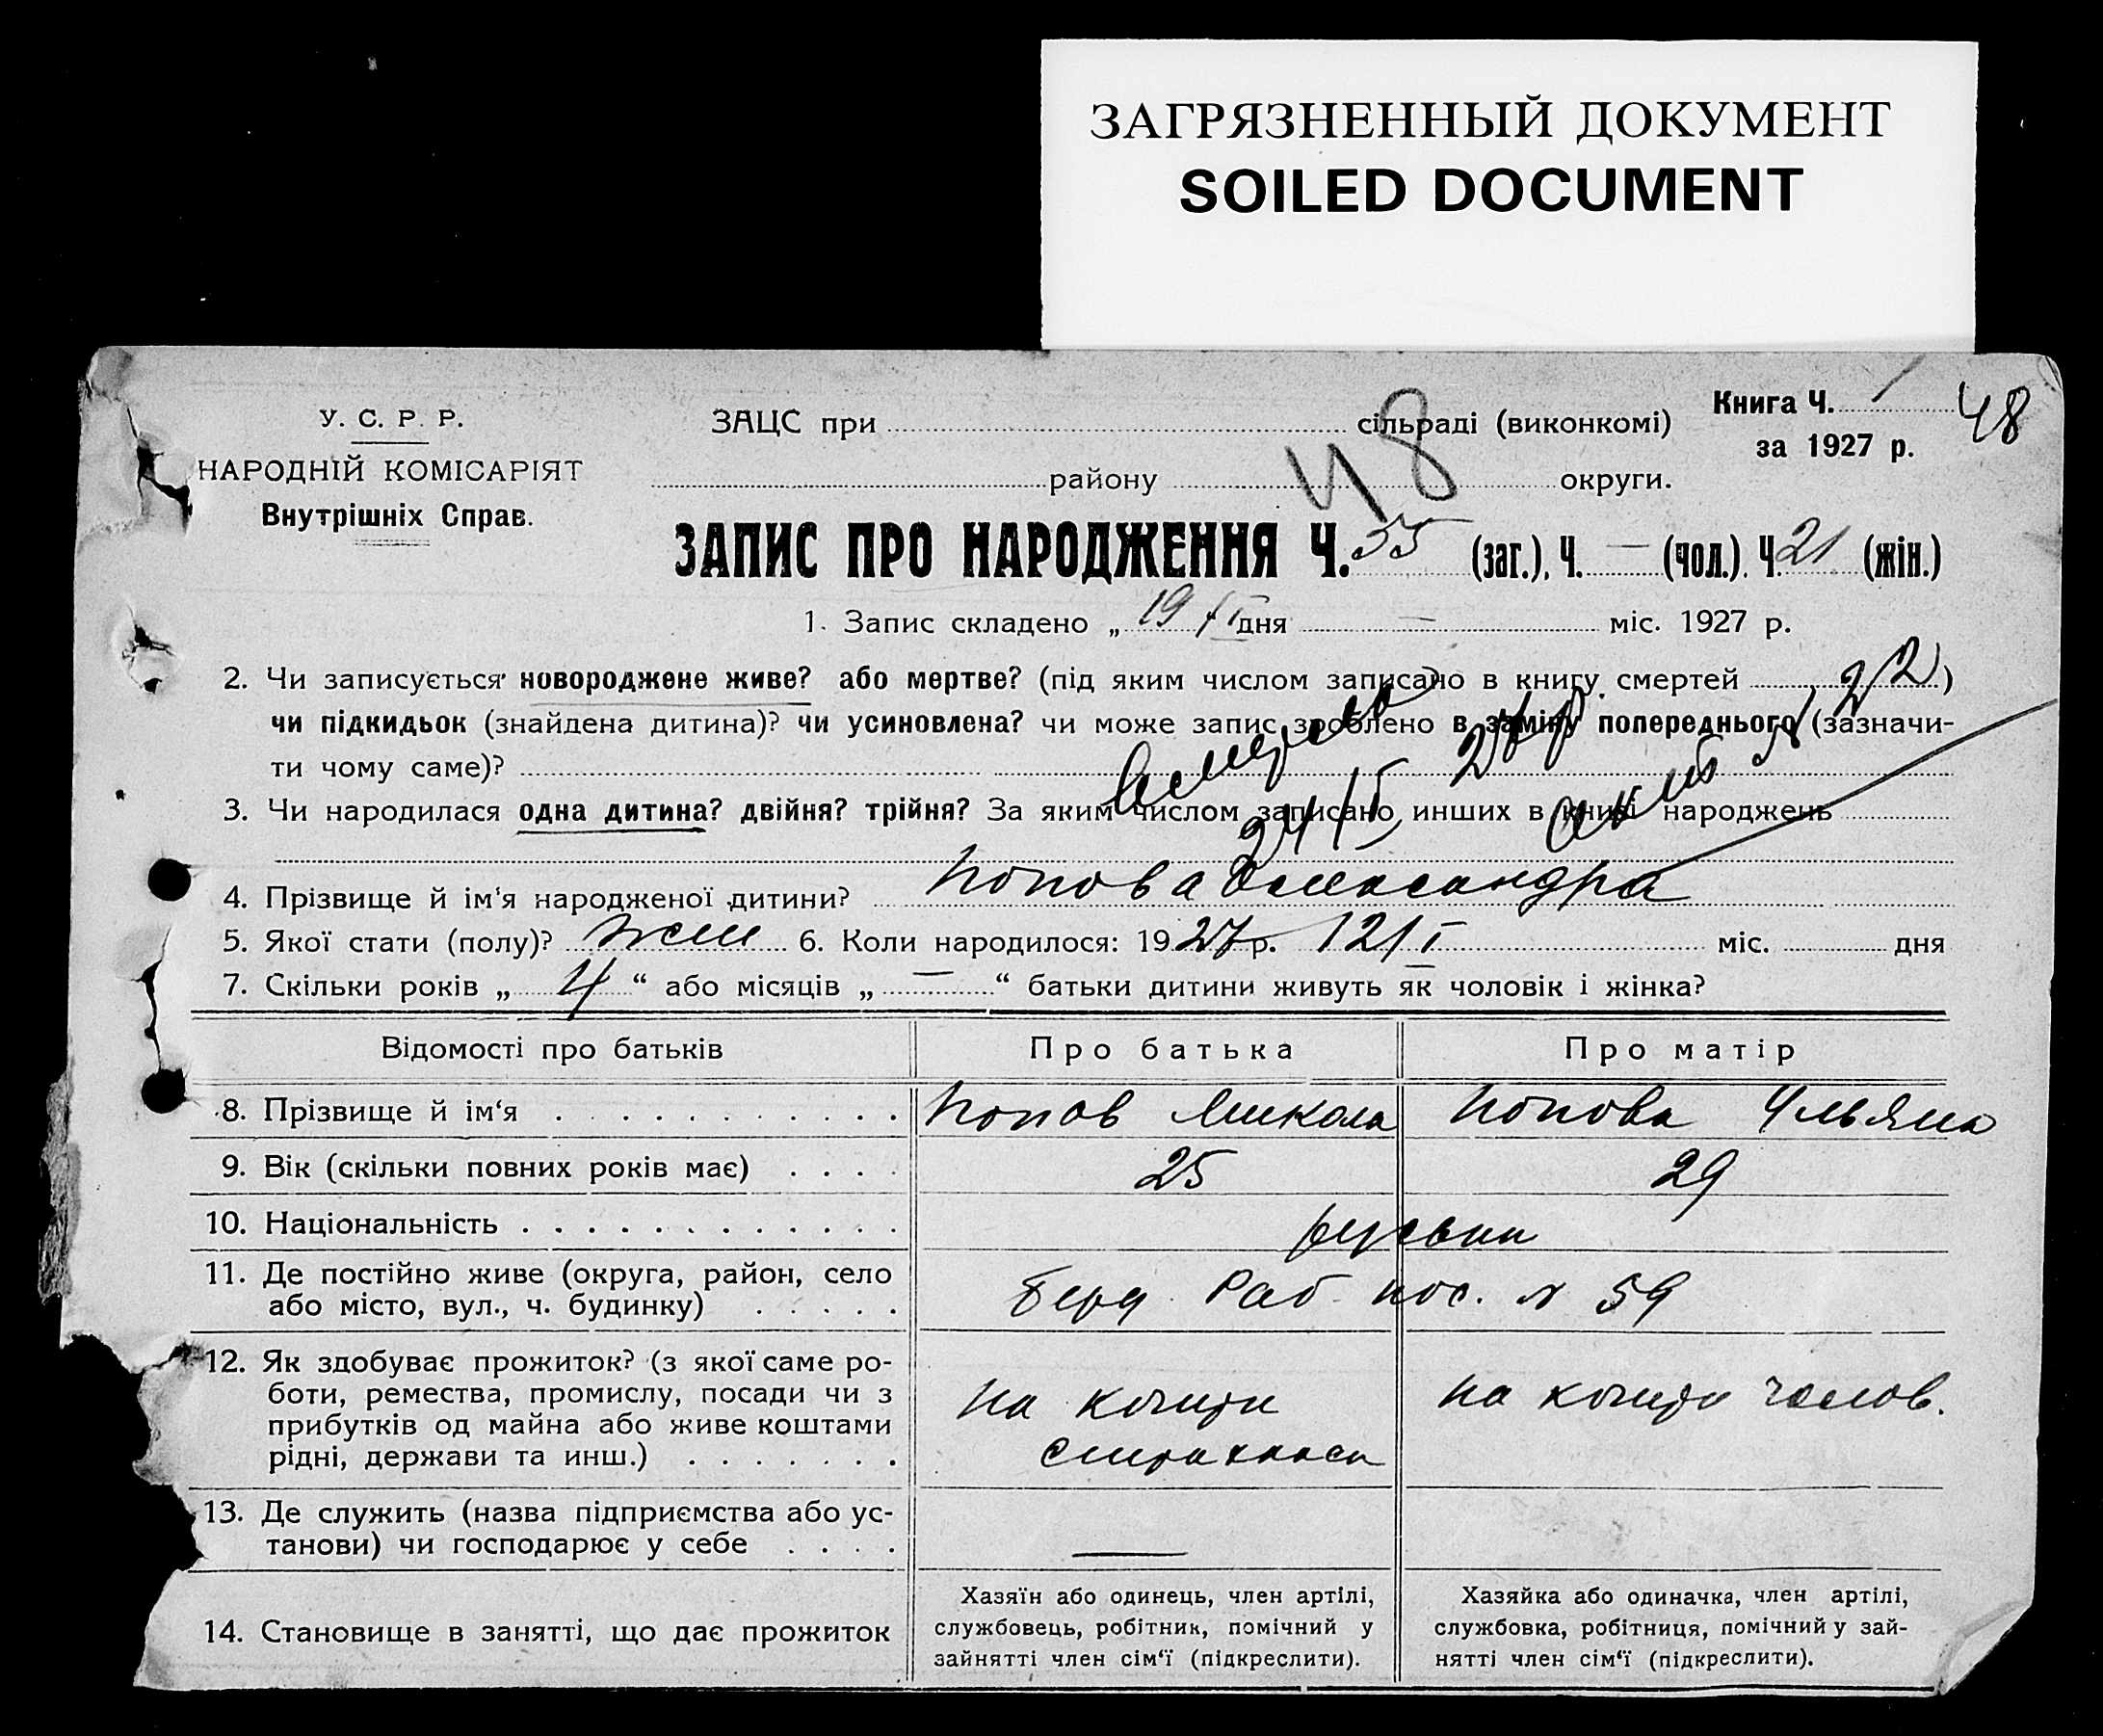 ЗАГРЯЗНЕННЫЙ ДОКУМЕНТ
SOILED DOCUMENT
У. С. Р. Р.
НАРОДНІЙ КОМІСАРІЯТ
Внутрішніх Справ.
ЗАЦС при сільраді (виконкомі)
району округи.
Книга Ч. 1
за 1927 р.
48
48
ЗАПИС ПРО НАРОДЖЕННЯ Ч. 35 (заг.), Ч. — (чол.). Ч. 21 (жін.)
1. Запис складено „ 19/I дня — міс. 1927 р.
2. Чи записується новороджене живе? або мертве? (під яким числом записано в книгу смертей )
чи підкидьок (знайдена дитина)? чи усиновлена? чи може запис зроблено в заміну попереднього (зазначи-
ти чому саме)?
3. Чи народилася одна дитина? двійня? трійня? За яким числом записано инших в книзі народжень
вмерла
24/I 27 р. акт № 22
4. Прізвище й ім'я народженої дитини? Попова Олександра
5. Якої стати (полу)? жін 6. Коли народилося: 1927 р. 12/I міс. дня
7. Скільки років „ 4 “ або місяців „ — “ батьки дитини живуть як чоловік і жінка?
Відомості про батьків Про батька Про матір
8. Прізвище й ім‘я Попов Микола Попова Ульяна
9. Вік (скільки повних років має) 25 29
10. Національність руськи
11. Де постійно живе (округа, район, село
або місто, вул., ч. будинку)
Берд Раб пос. № 59
12. Як здобуває прожиток? (з якої саме ро-
боти, ремества, промислу, посади чи з
прибутків од майна або живе коштами
рідні, держави та инш.)
на кошти
страхкаси
на кошти чолов.
13. Де служить (назва підприємства або ус-
танови) чи господарює у себе —
14. Становище в занятті, що дає прожиток
Хазяїн або одинець, член артілі,
службовець, робітник, помічний у
зайнятті член сім‘ї (підкреслити).
Хазяйка або одиначка, член артілі,
службовка, робітниця, помічний у зай-
нятті член сім‘ї (підкреслити).